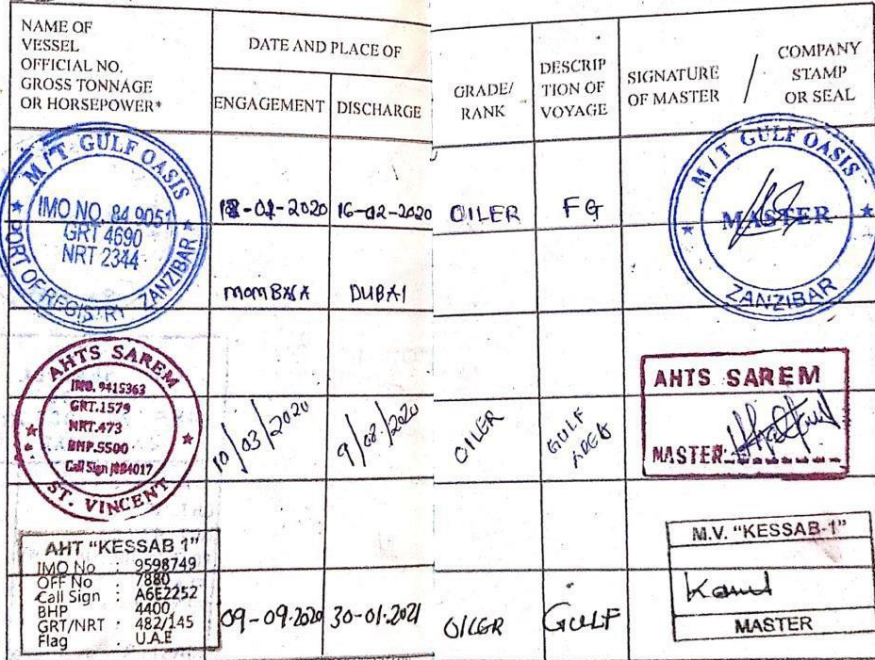 NAME OF
VESSEL
OFFICIAL NO.
GROSS TONNAGE
OR HORSEPOWER*
DATE AND PLACE OF
ENGAGEMENT
DISCHARGE
GRADE/
RANK
DESCRIP
TION OF
VOYAGE
SIGNATURE
OF MASTER
/
COMPANY
STAMP
OR SEAL
M/T GULF OASIS
IMO NO. 84 9051
GRT 4690
NRT 2344
PORT OF REGISTRY ZANZIBAR
-2020
16-02-2020
OILER
FG
M/T GULF OASIS
MASTER
ZANZIBAR
MOMBASA
DUBAI
AHTS SAREM
IMO. 9415363
GRT.1579
NRT.473
BHP.5500
Call Sign
ST. VINCENT
10/03/2020
9/08/2020
OILER
GULF
AREA
AHTS SAREM
MASTER:
AHT "KESSAB 1"
IMO No : 9598749
OFF No : 7880
Call Sign : A6E2252
BHP : 4400
GRT/NRT : 482/145
Flag : U.A.E
09-09-2020
30-01-2021
OILER
GULF
M.V. "KESSAB-1"
MASTER